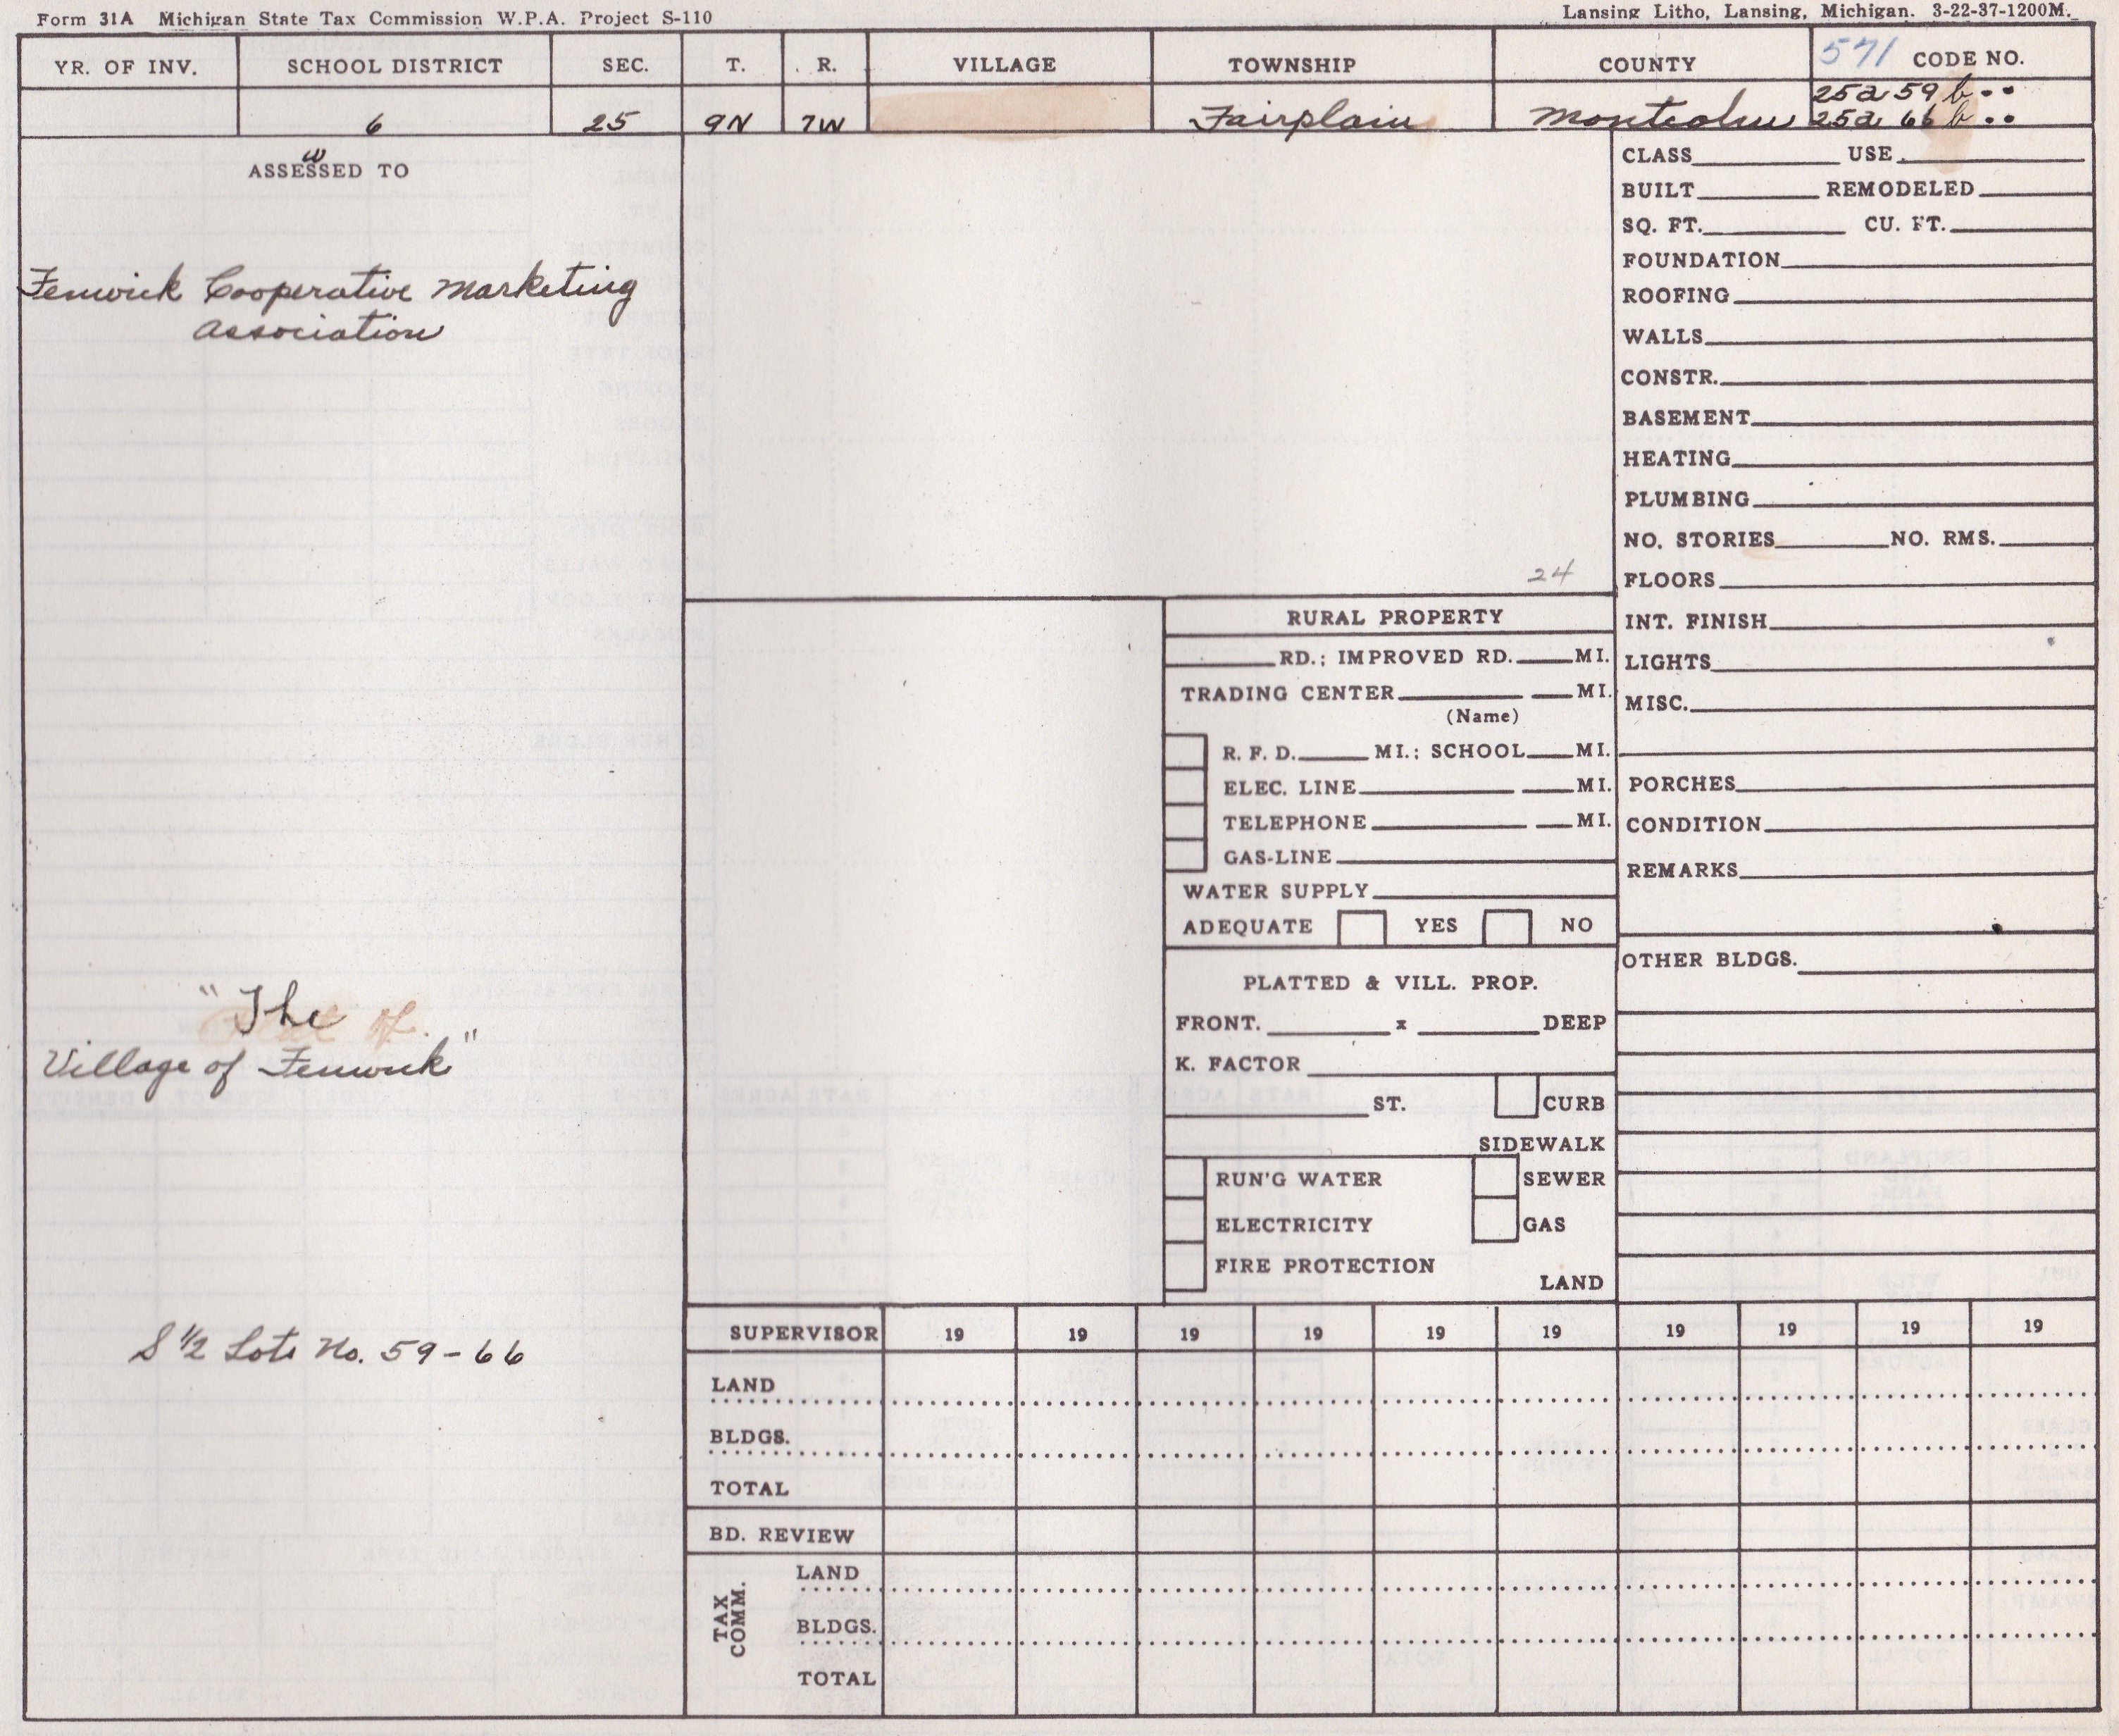 Form 31A Michigan State Tax Commission W.P.A. Project S-110
Lansing Litho, Lansing, Michigan. 3-22-37-1200M.
YR. OF INV. SCHOOL DISTRICT SEC. T. R. VILLAGE TOWNSHIP COUNTY 571 CODE NO.
25a 59 b..
6 25 9N 7W Fairplain Montcalm 25a 66 b..
w
ASSESSED TO
Fenwick Cooperative Marketing
Association
"The
Village of Fenwick"
S 1/2 Lots No. 59-66
24
RURAL PROPERTY
RD.; IMPROVED RD. MI.
TRADING CENTER MI.
(Name)
R. F. D. MI.; SCHOOL MI.
ELEC. LINE MI.
TELEPHONE MI.
GAS-LINE
WATER SUPPLY
ADEQUATE YES NO
PLATTED & VILL. PROP.
FRONT. x DEEP
K. FACTOR
ST. CURB
SIDEWALK
RUN'G WATER SEWER
ELECTRICITY GAS
FIRE PROTECTION
LAND
CLASS USE
BUILT REMODELED
SQ. FT. CU. FT.
FOUNDATION
ROOFING
WALLS
CONSTR.
BASEMENT
HEATING
PLUMBING
NO. STORIES NO. RMS.
FLOORS
INT. FINISH
LIGHTS
MISC.
PORCHES
CONDITION
REMARKS
OTHER BLDGS.
SUPERVISOR 19 19 19 19 19 19 19 19 19 19
LAND
BLDGS.
TOTAL
BD. REVIEW
TAX COMM.
LAND
BLDGS.
TOTAL